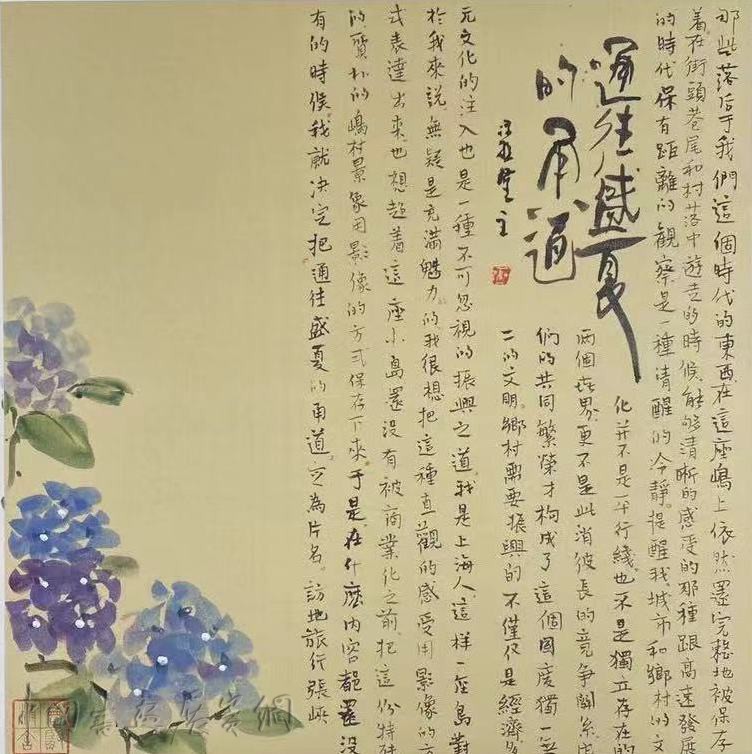 那些落后于我們這個時代的東西在這座嶋上依然還完整地被保存
着在街頭巷尾和村落中遊走的時候能够清晰的感受的那種跟高速發展
的時代保有距離的觀察是一種清醒的冷靜。提醒我城市和鄉村的文
通往盛夏
的甬道
堂主
化并不是平行綫也不是獨立存在的
兩個世界更不是此消彼長的竟争關系
們的共同繁榮才构成了這個國度獨一無
二的文明。鄉村需要振興的不僅仅是經濟多
元文化的注入也是一種不可忽視的振興之道。我是上海人。這样一座島對
於我來說無疑是充满魅力。的我很想把這種直觀的感受用影像的方
式表達出來。也想趁着這座小島還没有被商業化之前。把這份特殊
的質朴的嶋村景象用影像的方式保存下來于是。在什麽内容都還没
有的時候。我就决定把通往盛夏的甬道。定為片名。訪地旅行張峽